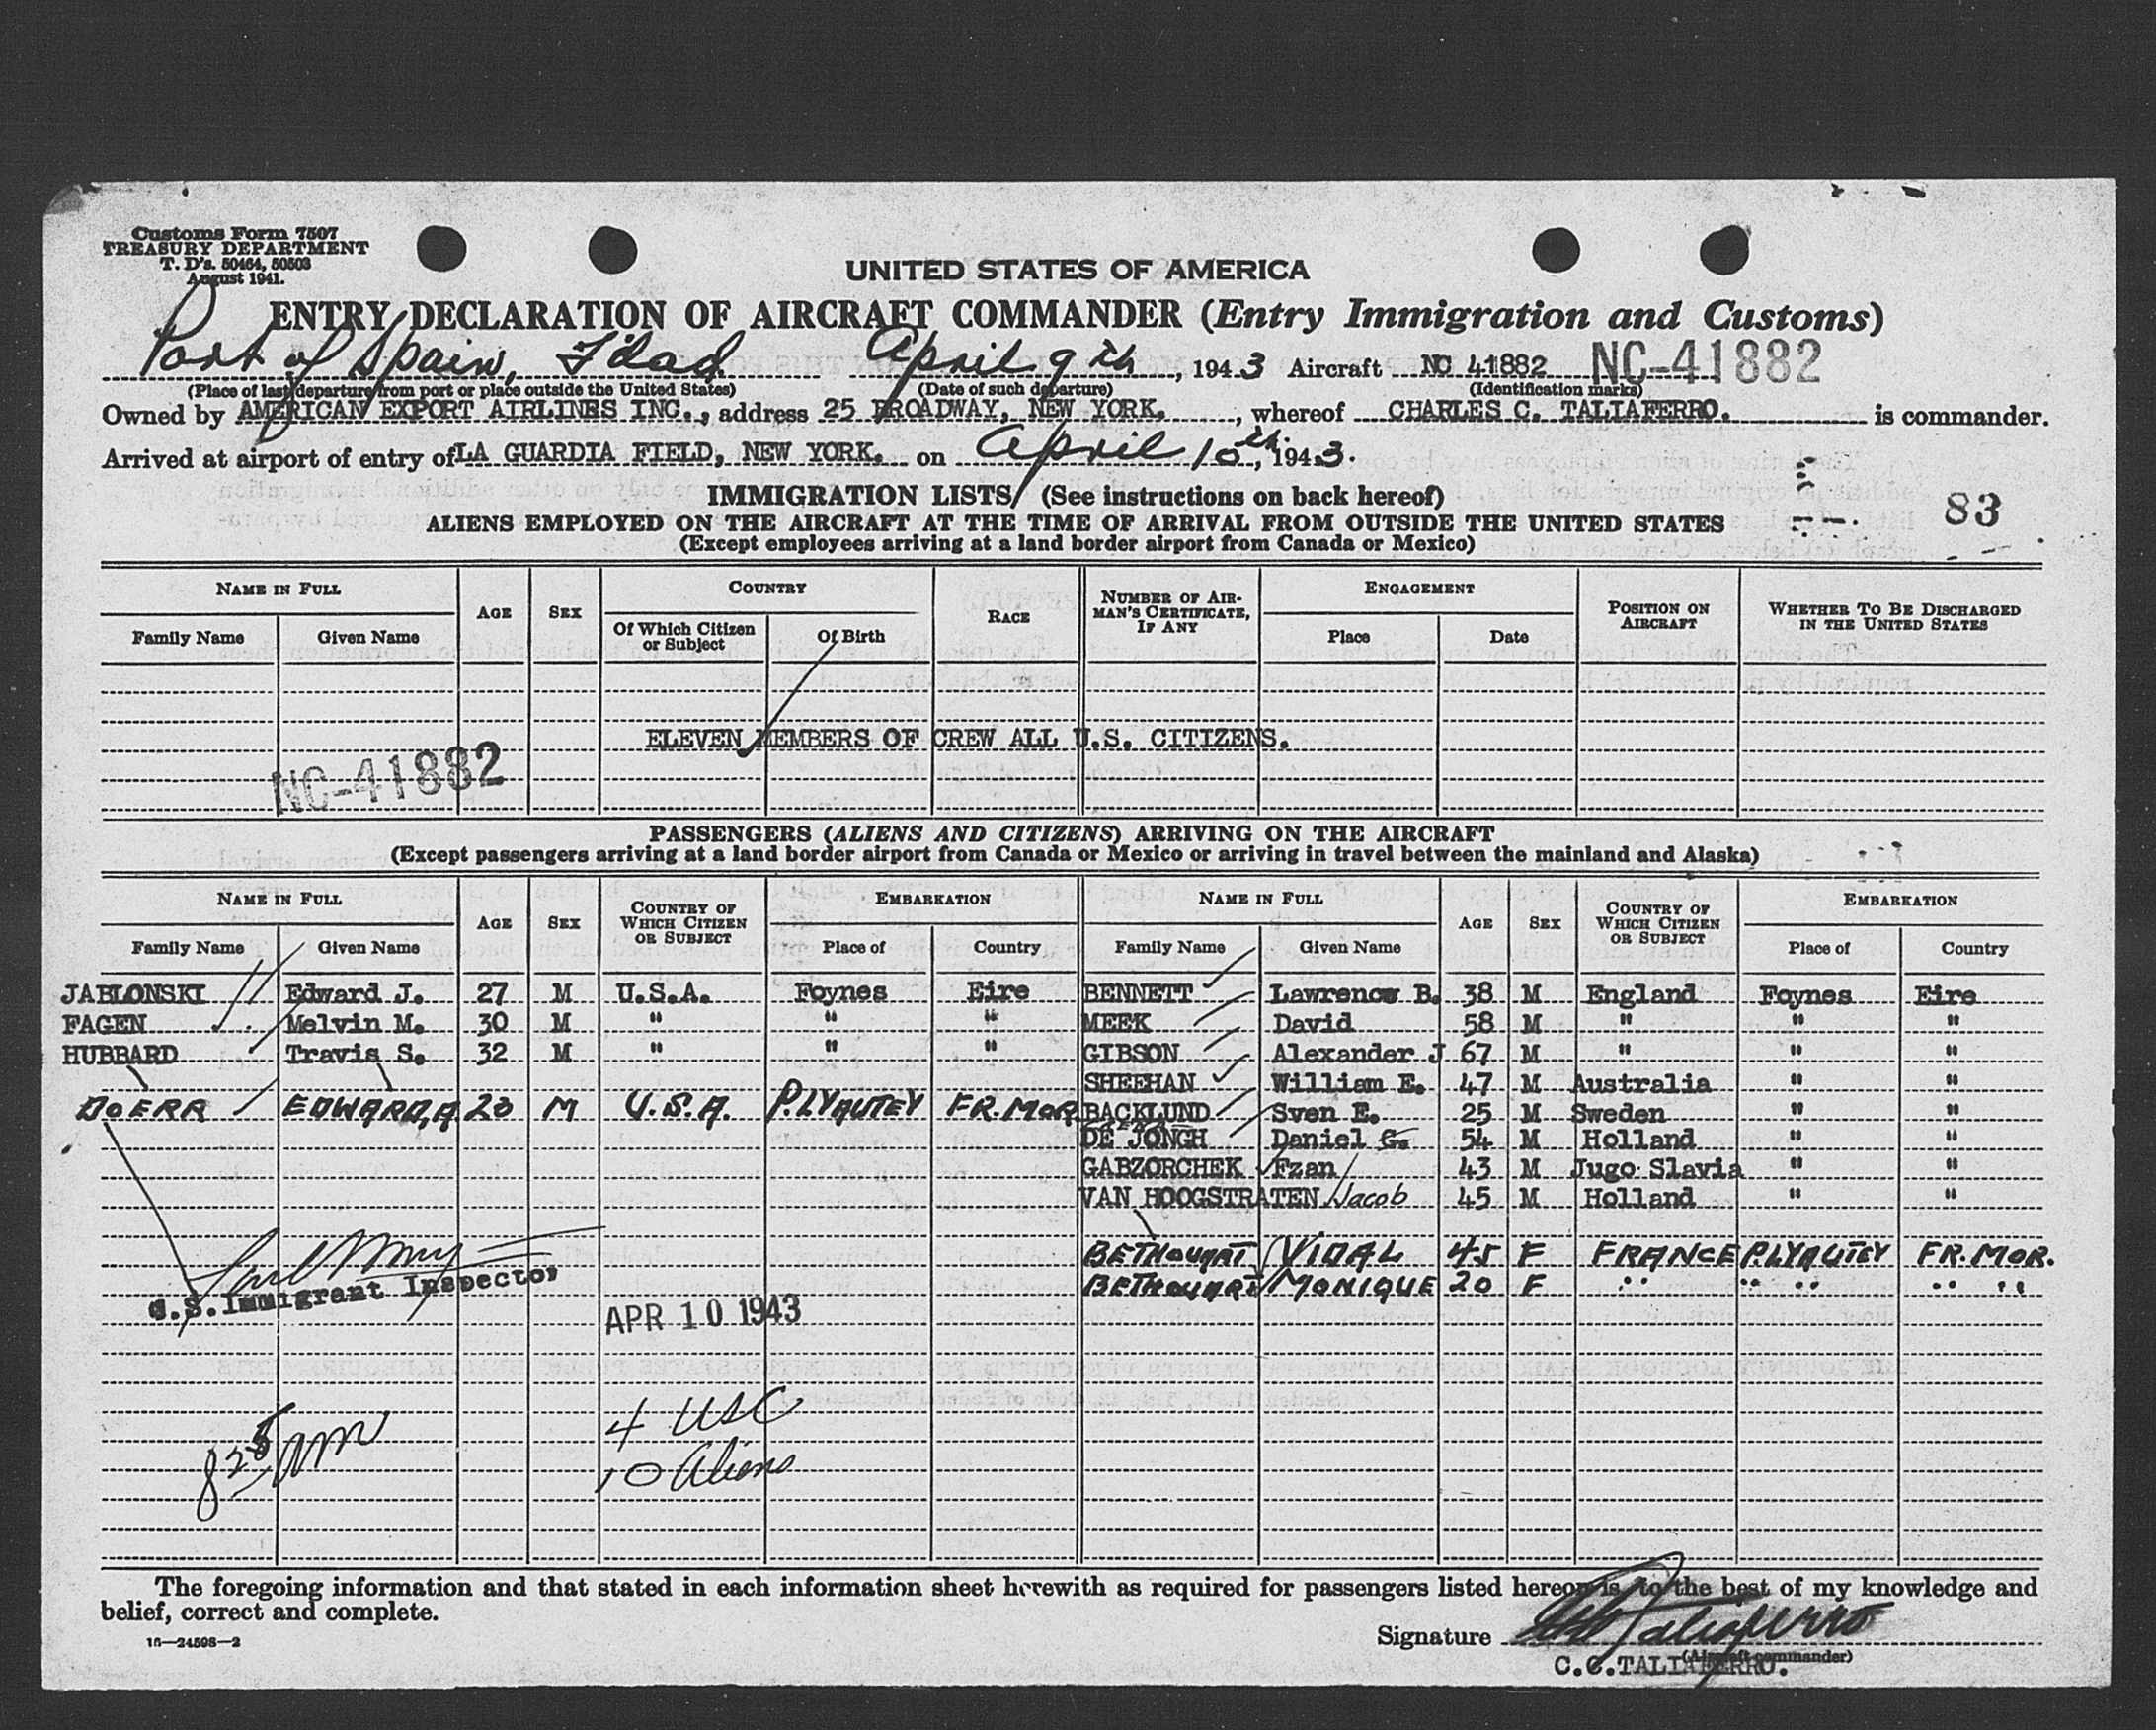 Customs Form 7507
TREASURY DEPARTMENT
T. D's. 50464, 50503
August 1941.
UNITED STATES OF AMERICA
ENTRY DECLARATION OF AIRCRAFT COMMANDER (Entry Immigration and Customs)
Port of Spain, T'dad April 9th, 1943 Aircraft NC 41882 NC-41882
(Place of last departure from port or place outside the United States) (Date of such departure) (Identification marks)
Owned by AMERICAN EXPORT AIRLINES INC., address 25 BROADWAY, NEW YORK., whereof CHARLES C. TALIAFERRO. is commander.
Arrived at airport of entry of LA GUARDIA FIELD, NEW YORK. on April 10th, 1943.
IMMIGRATION LISTS (See instructions on back hereof)
83
ALIENS EMPLOYED ON THE AIRCRAFT AT THE TIME OF ARRIVAL FROM OUTSIDE THE UNITED STATES
(Except employees arriving at a land border airport from Canada or Mexico)
NAME IN FULL AGE SEX COUNTRY RACE NUMBER OF AIRMAN'S CERTIFICATE, IF ANY ENGAGEMENT POSITION ON AIRCRAFT WHETHER TO BE DISCHARGED IN THE UNITED STATES
Family Name Given Name Of Which Citizen or Subject Of Birth Place Date
ELEVEN MEMBERS OF CREW ALL U.S. CITIZENS.
NC-41882
PASSENGERS (ALIENS AND CITIZENS) ARRIVING ON THE AIRCRAFT
(Except passengers arriving at a land border airport from Canada or Mexico or arriving in travel between the mainland and Alaska)
NAME IN FULL AGE SEX COUNTRY OF WHICH CITIZEN OR SUBJECT EMBARKATION NAME IN FULL AGE SEX COUNTRY OF WHICH CITIZEN OR SUBJECT EMBARKATION
Family Name Given Name Place of Country Family Name Given Name Place of Country
JABLONSKI Edward J. 27 M U.S.A. Foynes Eire BENNETT Lawrence B. 38 M England Foynes Eire
FAGEN Melvin M. 30 M " " " MEEK David 58 M " " "
HUBBARD Travis S. 32 M " " " GIBSON Alexander J 67 M " " "
SHEEHAN William E. 47 M Australia " "
DOERR EDWARD, A. 20 M U.S.A. P.LYAUTEY FR.MOR BACKLUND Sven E. 25 M Sweden " "
DE JONGH Daniel G. 54 M Holland " "
GABZORCHEK Fzan 43 M Jugo Slavia " "
VAN HOOGSTRATEN Jacob 45 M Holland " "
BETHOUART VIDAL 45 F FRANCE P.LYAUTEY FR.MOR.
BETHOUART MONIQUE 20 F " " " " "
U.S. Immigrant Inspector
APR 10 1943
4 USC
10 Aliens
8 25 am
The foregoing information and that stated in each information sheet herewith as required for passengers listed hereon is to the best of my knowledge and
belief, correct and complete.
16—24598—2
Signature
(Aircraft commander)
C.C.TALIAFERRO.